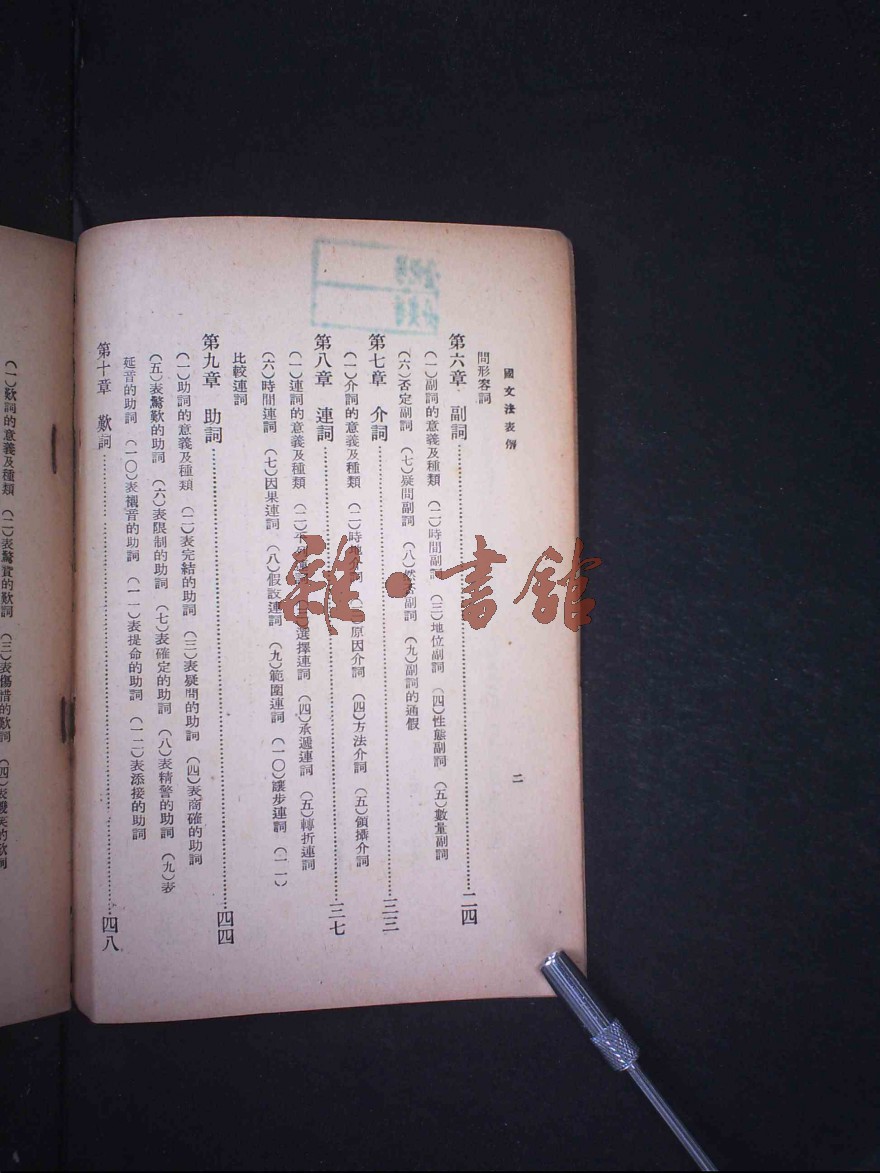 國文法表解
二
問形容詞
第六章 副詞……二四
(一)副詞的意義及種類 (二)時間副詞 (三)地位副詞 (四)性態副詞 (五)數量副詞
(六)否定副詞 (七)疑問副詞 (八)然否副詞 (九)副詞的通假
第七章 介詞……三三
(一)介詞的意義及種類 (二)時地介詞 (三)原因介詞 (四)方法介詞 (五)領攝介詞
第八章 連詞……三七
(一)連詞的意義及種類 (二)平列連詞 (三)選擇連詞 (四)承遞連詞 (五)轉折連詞
(六)時間連詞 (七)因果連詞 (八)假設連詞 (九)範圍連詞 (一〇)讓步連詞 (一一)
比較連詞
第九章 助詞……四四
(一)助詞的意義及種類 (二)表完結的助詞 (三)表疑問的助詞 (四)表商確的助詞
(五)表驚歎的助詞 (六)表限制的助詞 (七)表確定的助詞 (八)表精警的助詞 (九)表
延音的助詞 (一〇)表襯音的助詞 (一一)表提命的助詞 (一二)表添接的助詞
第十章 歎詞……四八
(一)歎詞的意義及種類 (二)表驚賞的歎詞 (三)表傷惜的歎詞
雜·書館